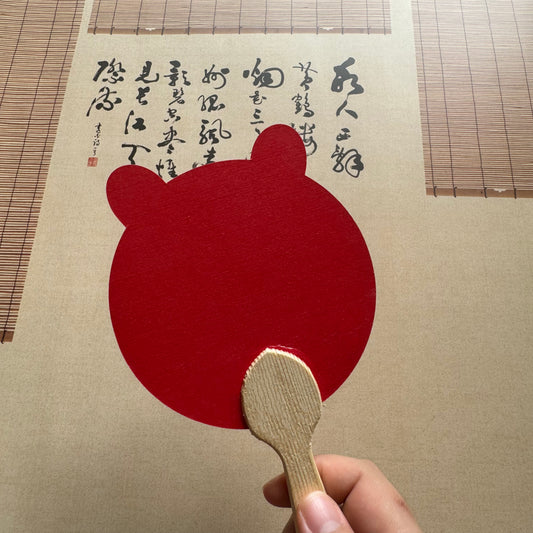 故人西辭
黄鶴楼
烟花三
孤帆
影碧空盡惟
見長江天
際流